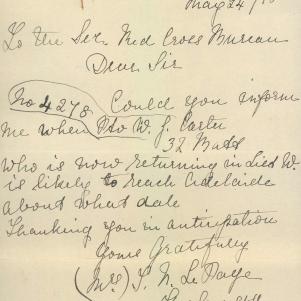 May 24/18
To the Sec. Red Cross Bureau
Dear Sir
No 4278 Could you inform
me when Pto W. J. Carter
32 Batt
Who is now returning in Lied W.
is likely to reach Adelaide
about what date
Thanking you in anticipation
yours Gratefully
(Mrs) S. N. Le Page